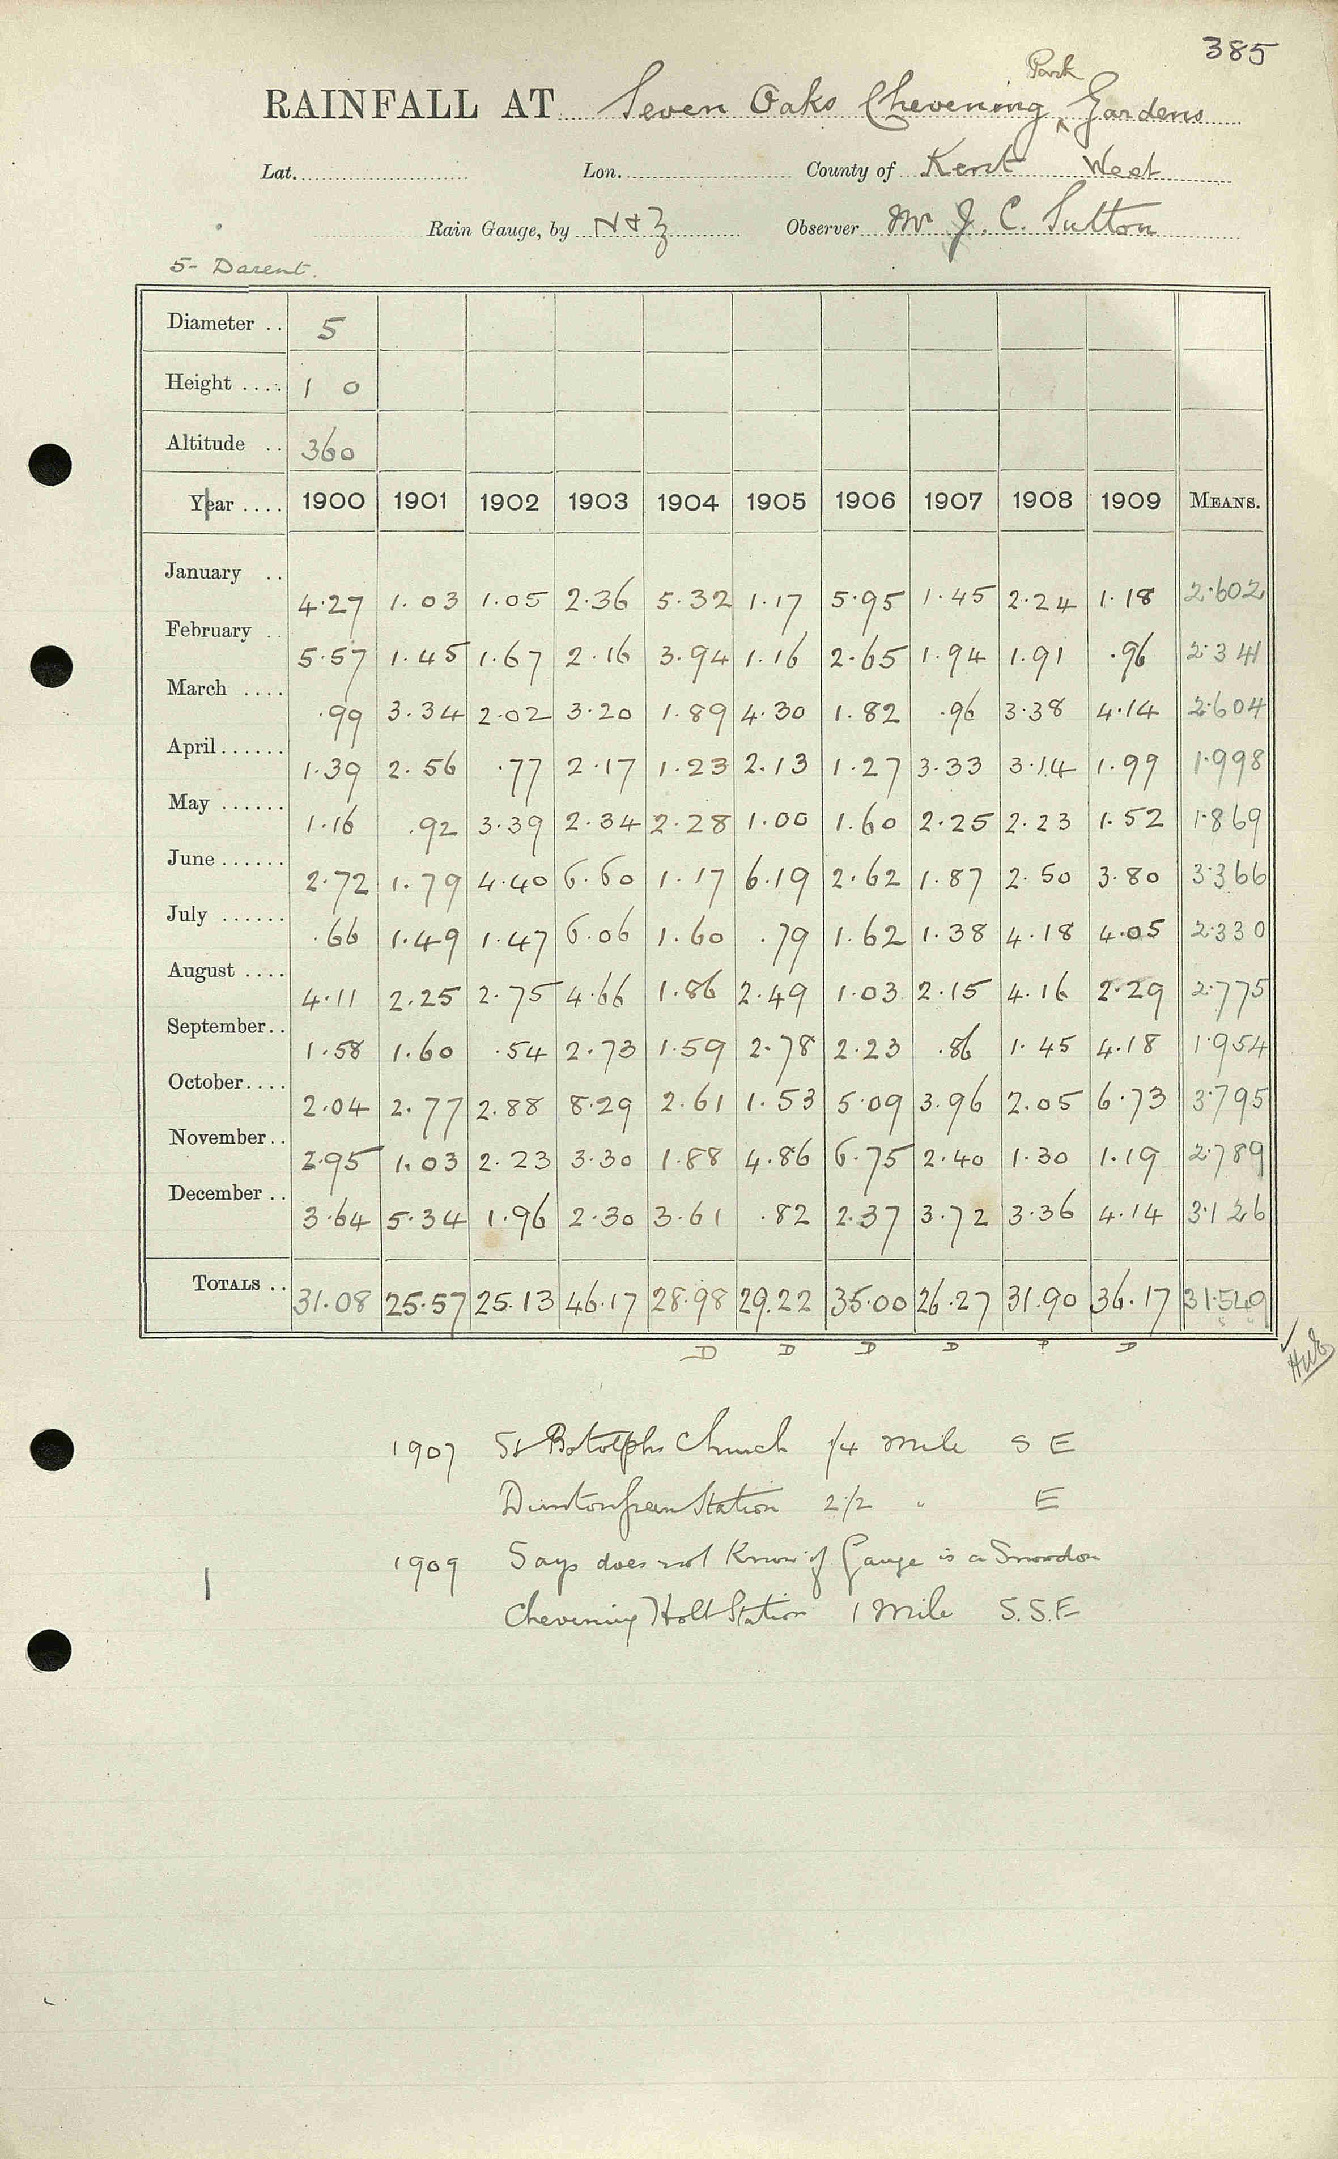 385
Park
RAINFALL AT Seven Oaks Chevening ^ Gardens
Lat. Lon. County of Kent West
Rain Gauge, by N & Z Observer Mr J. C. Sutton
5- Darent.
Diameter .. 5
Height .... 1 0
Altitude .. 360
Year .... 1900 1901 1902 1903 1904 1905 1906 1907 1908 1909 MEANS.
January .. 4.27 1.03 1.05 2.36 5.32 1.17 5.95 1.45 2.24 1.18 2.602
February .. 5.57 1.45 1.67 2.16 3.94 1.16 2.65 1.94 1.91 .96 2.341
March .... .99 3.34 2.02 3.20 1.89 4.30 1.82 .96 3.38 4.14 2.604
April ...... 1.39 2.56 .77 2.17 1.23 2.13 1.27 3.33 3.14 1.99 1.998
May ...... 1.16 .92 3.39 2.34 2.28 1.00 1.60 2.25 2.23 1.52 1.869
June ...... 2.72 1.79 4.40 6.60 1.17 6.19 2.62 1.87 2.50 3.80 3.366
July ...... .66 1.49 1.47 6.06 1.60 .79 1.62 1.38 4.18 4.05 2.330
August .... 4.11 2.25 2.75 4.66 1.86 2.49 1.03 2.15 4.16 2.29 2.775
September.. 1.58 1.60 .54 2.73 1.59 2.78 2.23 .86 1.45 4.18 1.954
October.... 2.04 2.77 2.88 8.29 2.61 1.53 5.09 3.96 2.05 6.73 3.795
November.. 2.95 1.03 2.23 3.30 1.88 4.86 6.75 2.40 1.30 1.19 2.789
December .. 3.64 5.34 1.96 2.30 3.61 .82 2.37 3.72 3.36 4.14 3.126
TOTALS .. 31.08 25.57 25.13 46.17 28.98 29.22 35.00 26.27 31.90 36.17 31.549
D D D D P D
1907 St Botolphs Church 1/4 mile S E
Dunton Green Station 2 1/2 " E
1909 Says does not Know if Gauge is a Snowdon
Chevening Holt Station 1 Mile S.S.E